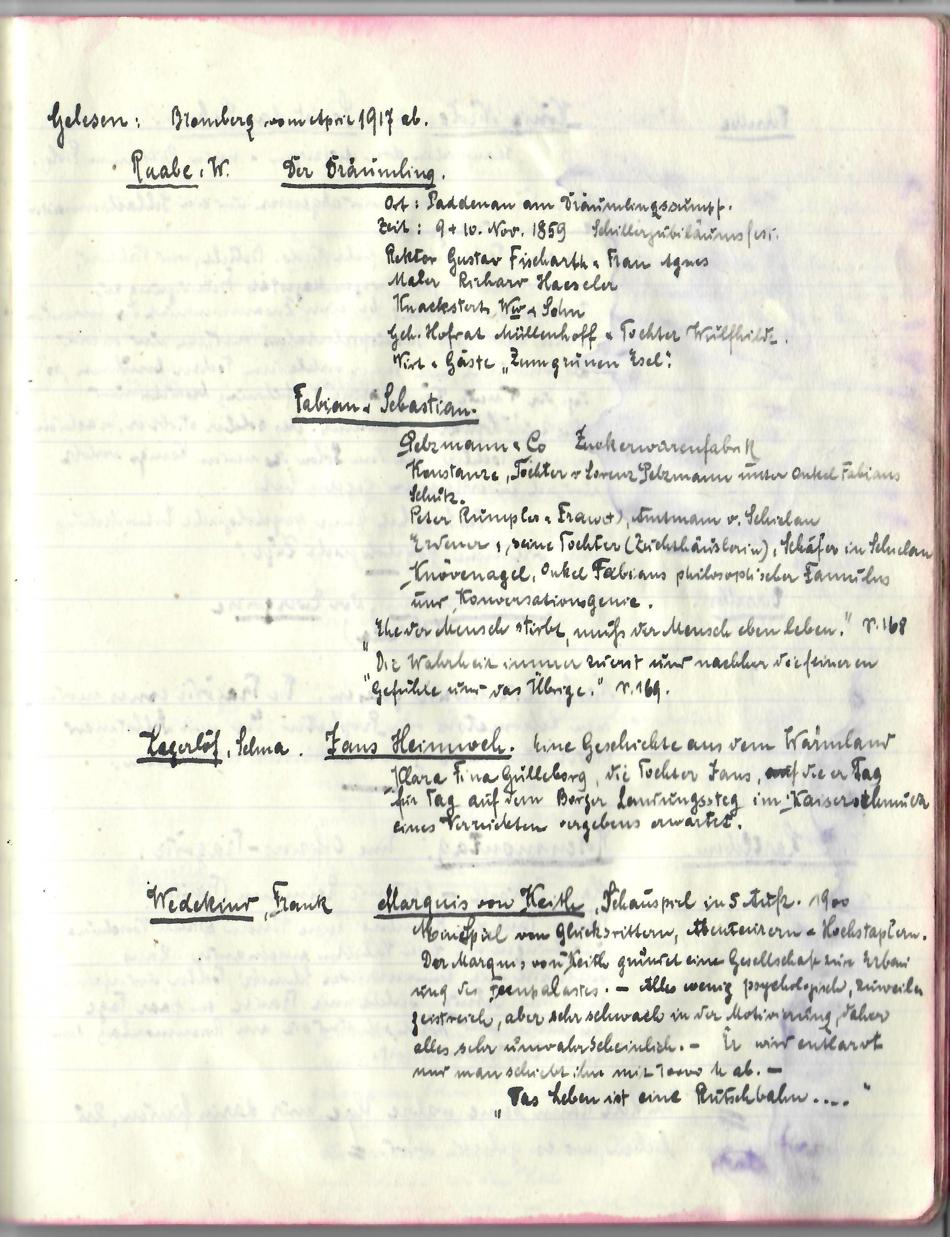 Gelesen: Bromberg vom April 1917 ab.
Raabe, W. Der Dräumling.
Ort: Paddenau am Dräumlingssumpf.
Zeit: 9+10. Nov. 1859 Schillerjubiläumsfest.
Rektor Gustav Fischarth u Frau Agnes
Maler Richard Haeseler
Knackstert, Ww u Sohn
Geh. Hofrat Müllenhoff u Tochter Wulfhilde.
Wirt u Gäste „Zum grünen Esel."
Fabian u Sebastian.
Pelzmann & Co Zuckerwarenfabrik
Konstanze, Tochter v Lorenz Pelzmann unter Onkel Fabians
Schutz.
Peter Rumpler u Frau (+), Amtmann v. Schielau
seine Tochter (Zuchthäuslerin), Schäfer in Schielau
Knövenagel, Onkel Fabians philosophischer Famulus
und Konversationsgenie.
„Ehe der Mensch stirbt, muß der Mensch eben leben." S. 168
„Die Wahrheit immer zuerst und nachher die feineren
„Gefühle und das Übrige." S. 169.
Lagerlöf, Selma. Jans Heimweh. Eine Geschichte aus dem Wärmland
Klara Fina Gulleborg, die Tochter Jans, auf die er Tag
für Tag auf dem Borger Landungssteg im Kaiserschmuck
eines Verrückten vergebens erwartet.
Wedekind, Frank Marquis von Keith, Schauspiel in 5 Aufz. 1900
Spiel von Glücksrittern, Abenteurern u Hochstaplern.
Der Marquis von Keith gründet eine Gesellschaft zur Erbau
ung des Feenpalastes. – Alles wenig psychologisch, zuweilen
geistreich, aber sehr schwach in der Motivierung, daher
alles sehr unwahrscheinlich. – Er wird entlarvt
und man schiebt ihn mit 10000 M ab. –
„Das Leben ist eine Rutschbahn...."